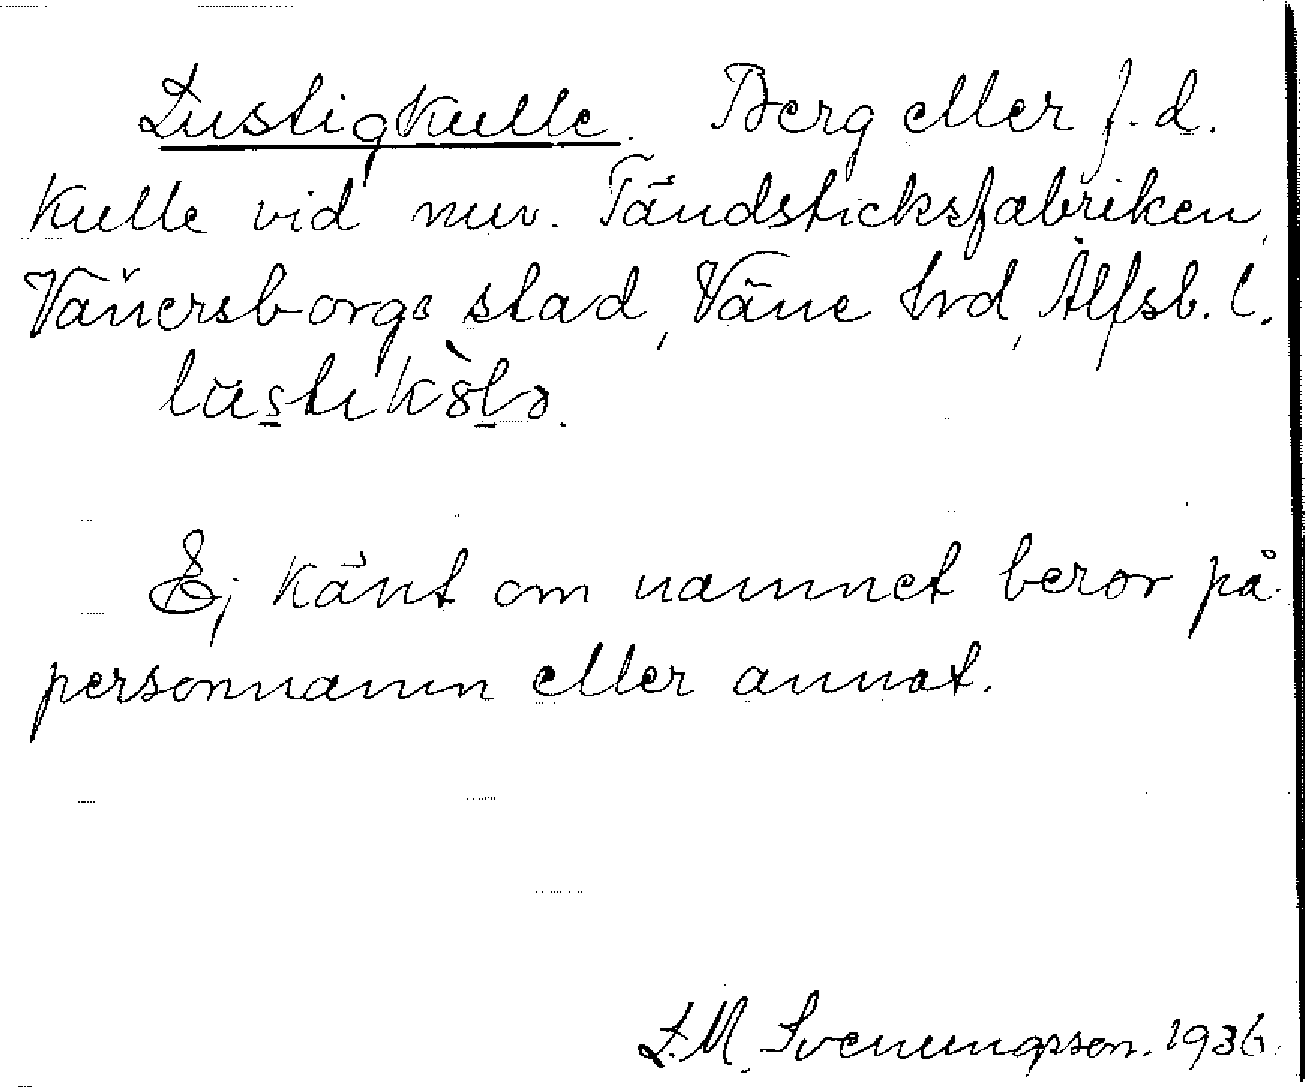 Lustigkulle. Berg eller f. d.
kulle vid nuv. Tändsticksfabriken,
Vänersborgs stad, Väne hrd, Älfsb. l.
Ej känt om namnet beror på
personnamn eller annat.
L. M. Svenungsson. 1936.